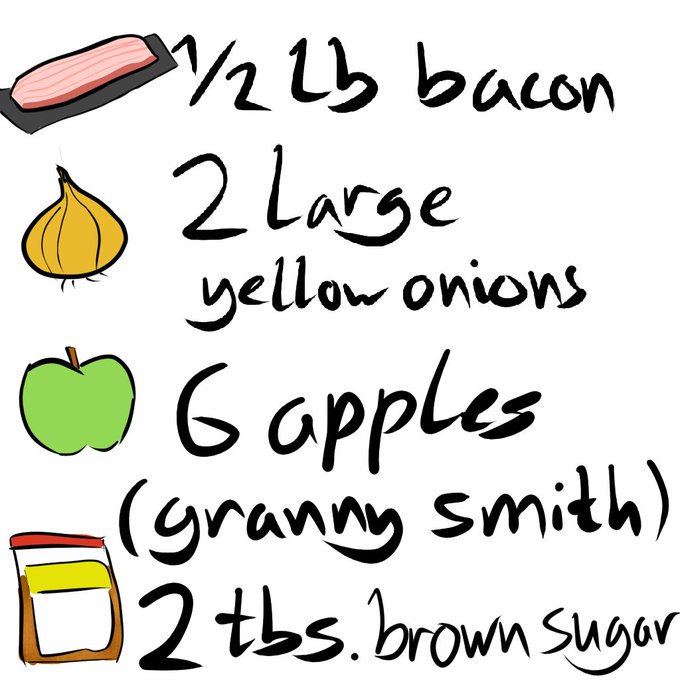 1/2 lb bacon
2 large
yellow onions
6 apples
(granny smith)
2 tbs. brown sugar